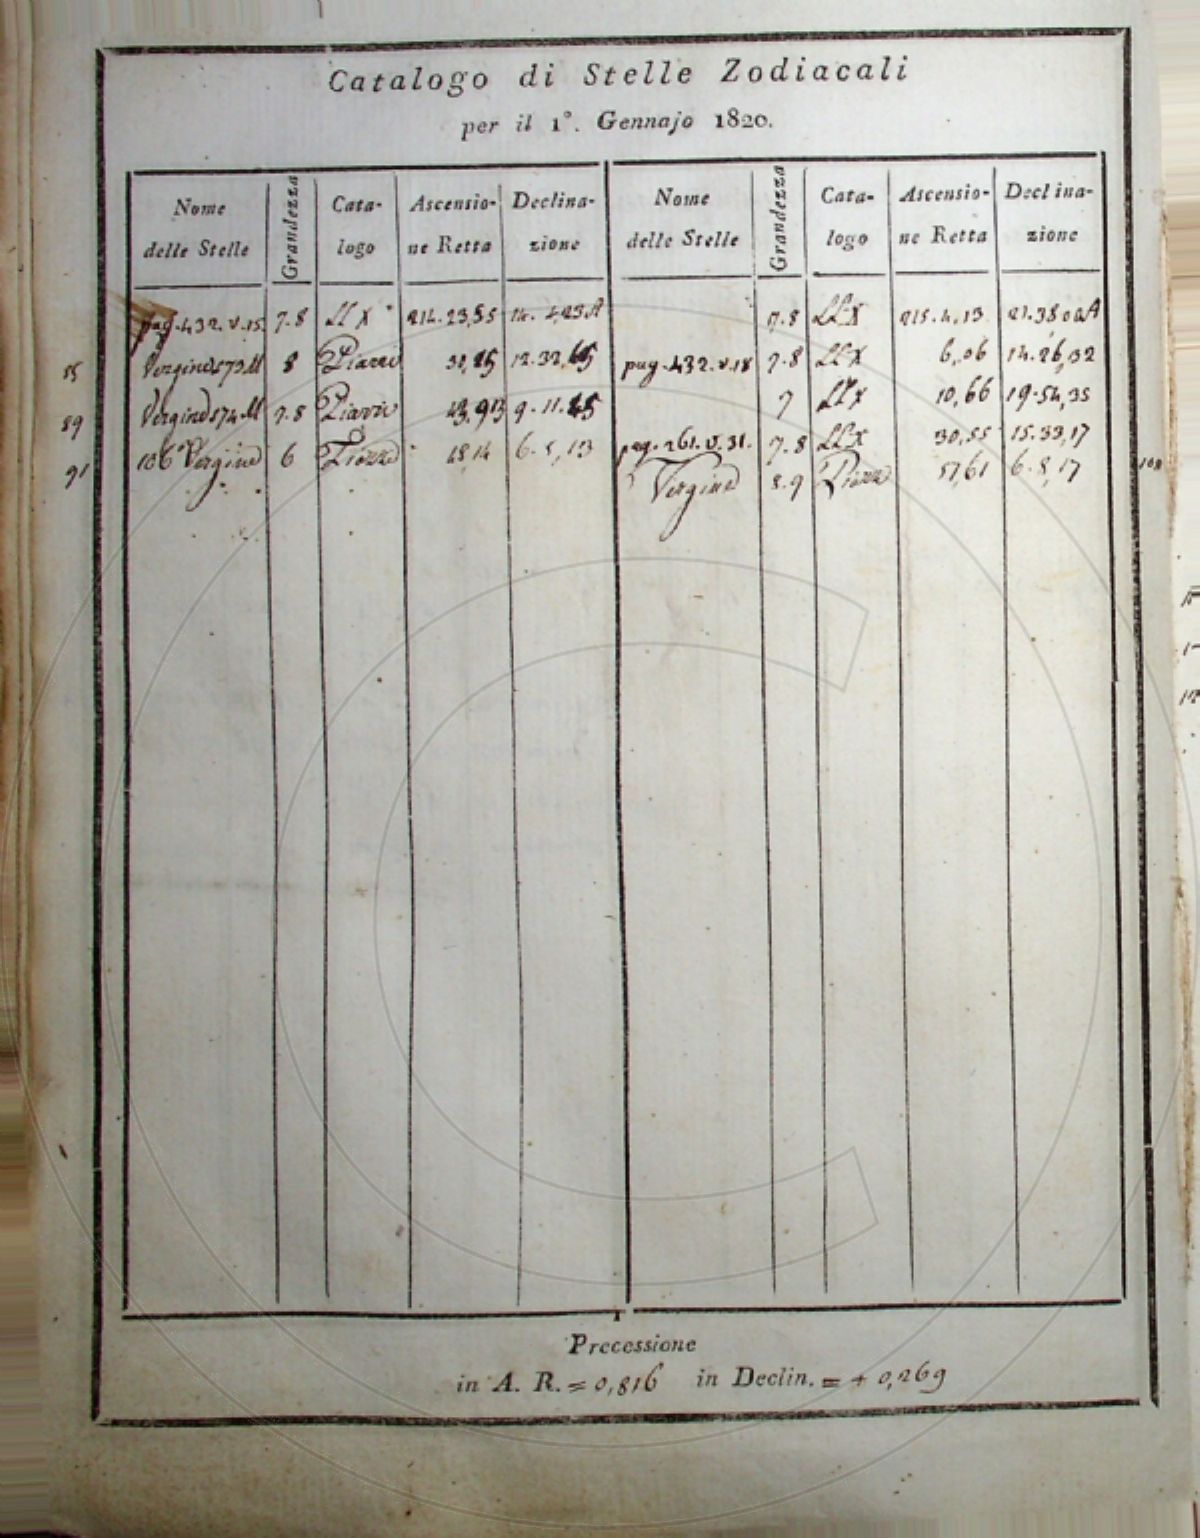 Catalogo di Stelle Zodiacali
per il 1°. Gennajo 1820.
Nome delle Stelle Grandezza Cata-logo Ascensio-ne Retta Declina-zione Nome delle Stelle Grandezza Cata-logo Ascensio-ne Retta Declina-zione
pag. 432. v. 15. 7.8 LL X 214. 23,55 14. 4,23 A 7.8 LL X 215. 4,13 21. 38,02 A
85 Vergine 573. M 8 Piazzi 12. 32, pag. 432. v. 18 7.8 LL X 6,06 14. 26,32
89 Vergine 574. M 7.8 Piazzi 9. 11. 7 LL X 10,66 19. 54,35
91 106 Vergine 6 Piazzi 48,14 6. 5,13 pag. 261. v. 31. 7.8 LL X 30,55 15. 33,17
Vergine 8.9 Piazzi 57,61 6. 8,17
Precessione
in A. R. = 0,816 in Declin. = + 0,269